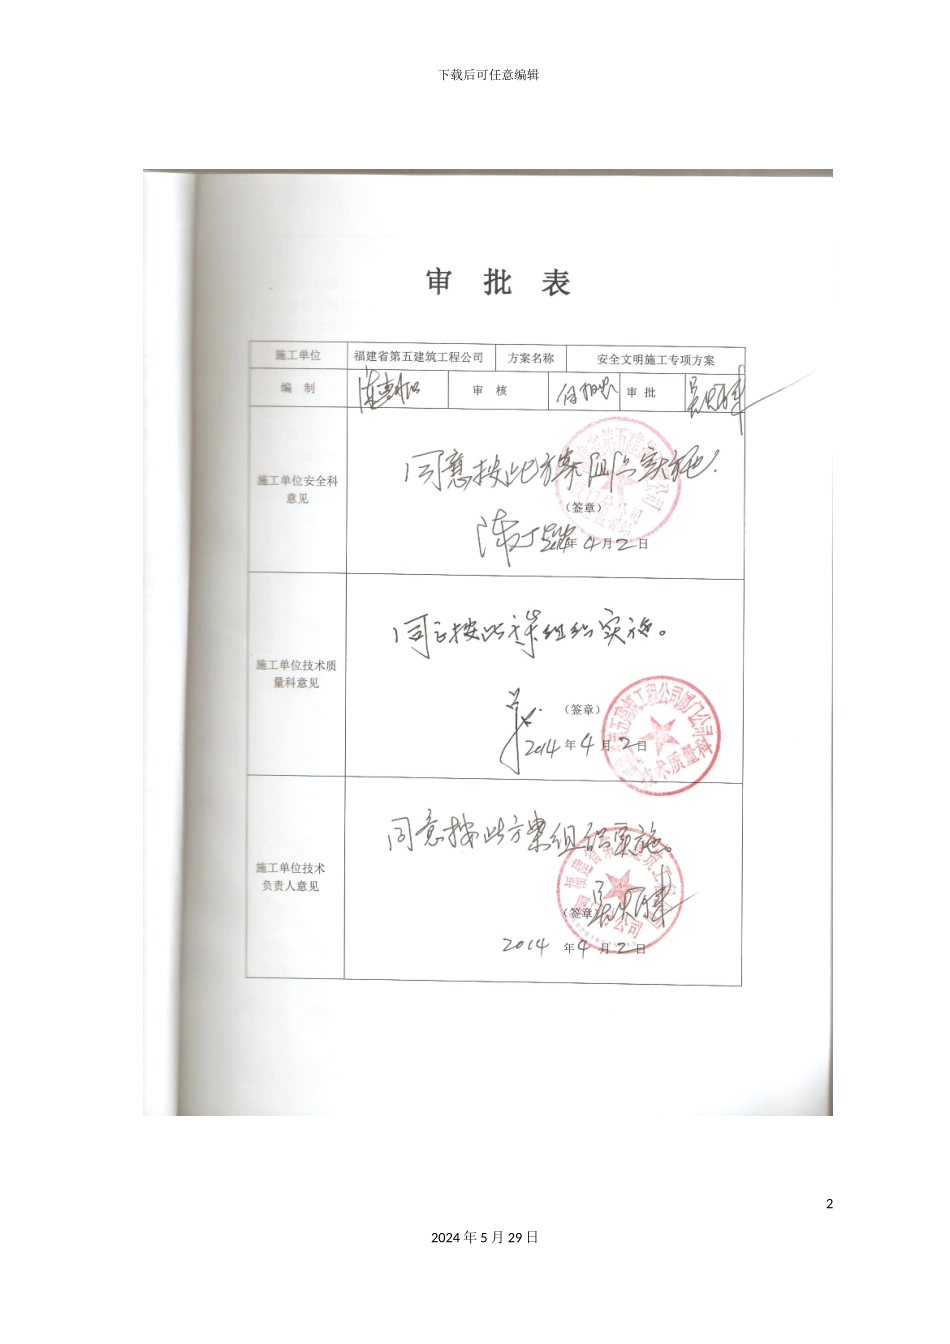 下载后可任意编辑
审 批 表
施工单位 福建省第五建筑工程公司 方案名称 安全文明施工专项方案
编 制 审 核 审 批
施工单位安全科
意见
同意按此方案组织实施!
(签章)
2014年4月2日
施工单位技术质
量科意见
同意按此方案组织实施。
(签章)
2014年4月2日
技术质量科
施工单位技术
负责人意见
同意按此方案组织实施。
(签章)
2014 年4月2日
2
2024 年 5 月 29 日